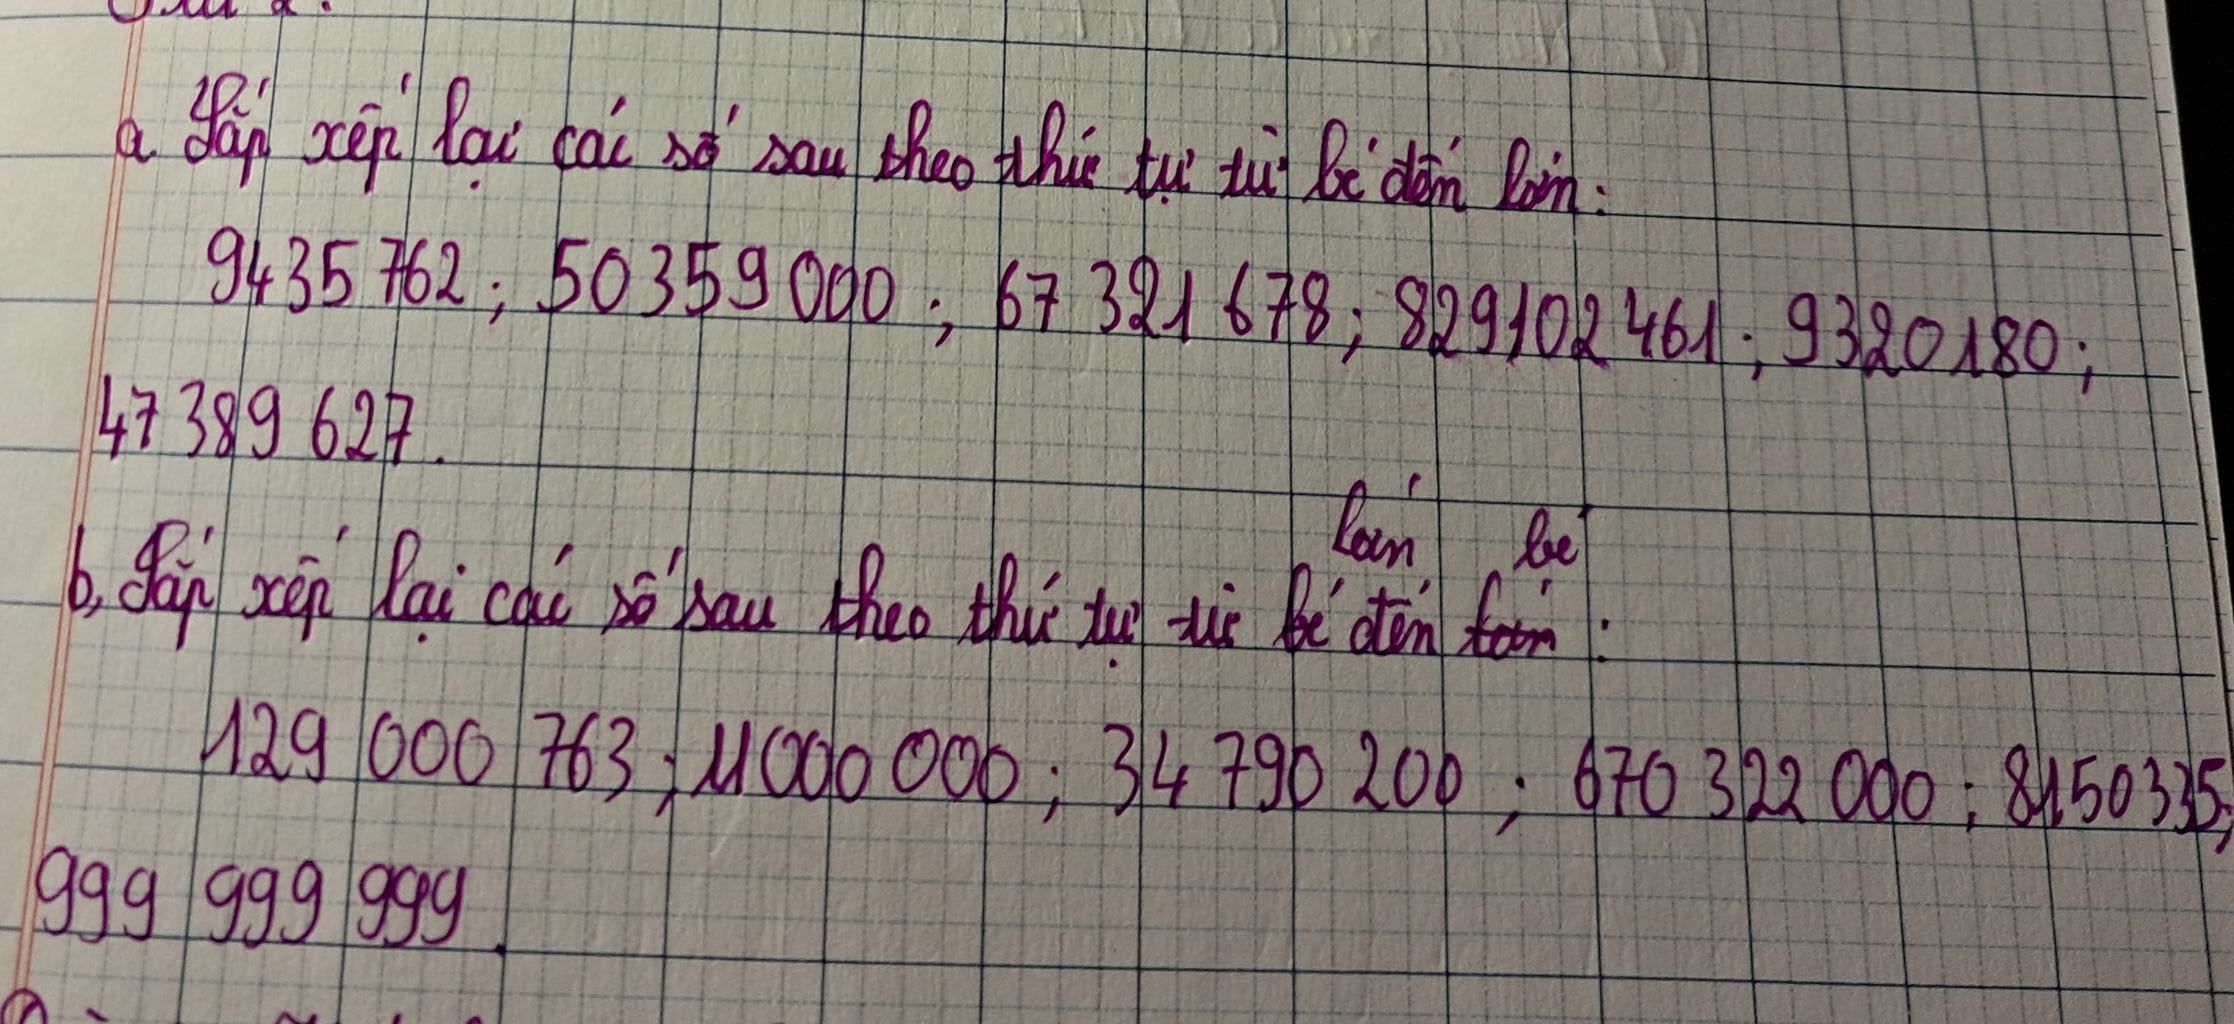 Bài 2:
a. Sắp xếp lại các số sau theo thứ tự từ bé đến lớn:
9435 762; 50 359 000; 67 321 678; 829102 461; 9320180;
47 389 627.
lớn bé
b, Sắp xếp lại các số sau theo thứ tự từ bé đến lớn:
129 000 763; 11000 000; 34 790 200; 670 322 000; 8150335;
999 999 999.